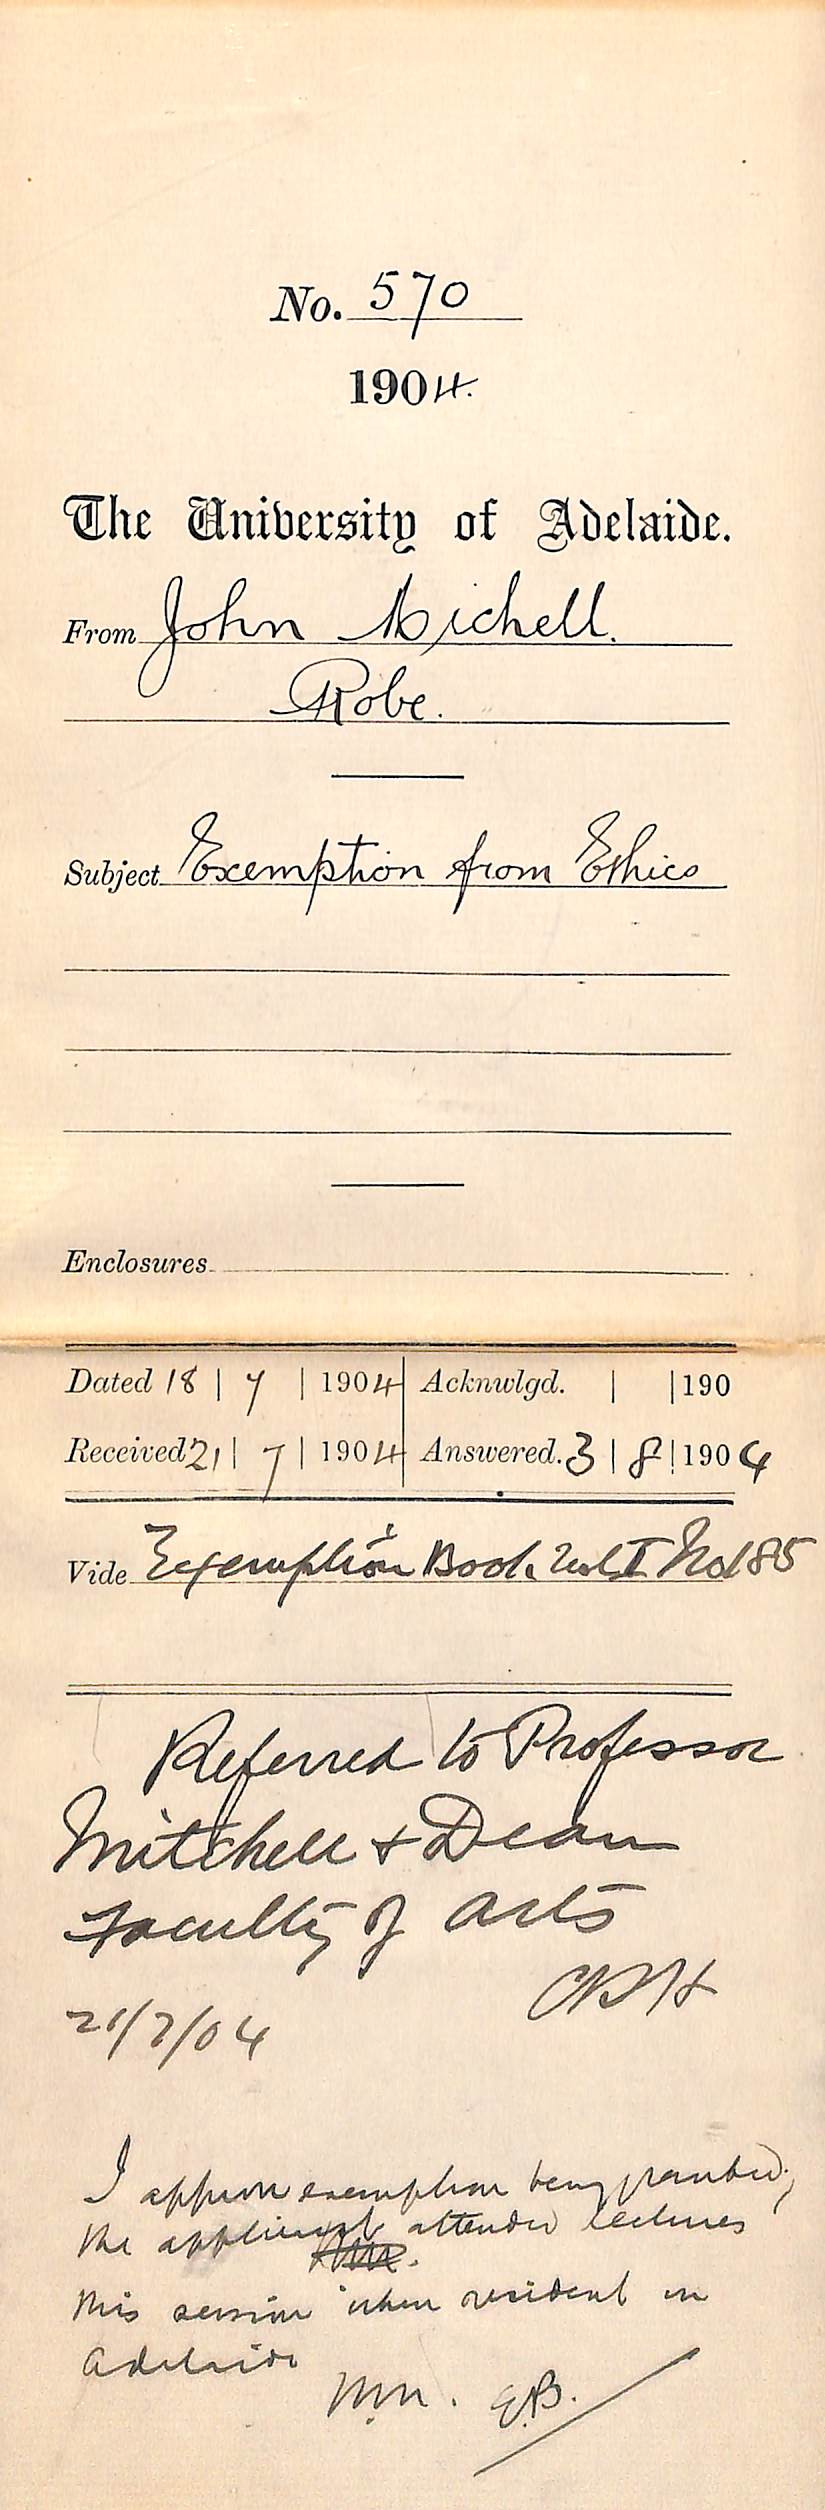 No. 570
1904.
The University of Adelaide.
From John Michell.
Robe.
Subject Exemption from Ethics
Enclosures
Dated 18 | 7 | 1904 Acknwlgd. | | 190
Received 21 | 7 | 1904 Answered. 3 | 8 | 1904
Vide Exemption Book Vol I No 185
Referred to Professor
Mitchell + Dean
Faculty of Arts
CRH
21/7/04
I approve exemption being granted;
the applicant attended lectures
this session when resident in
Adelaide
W.M. E.B.